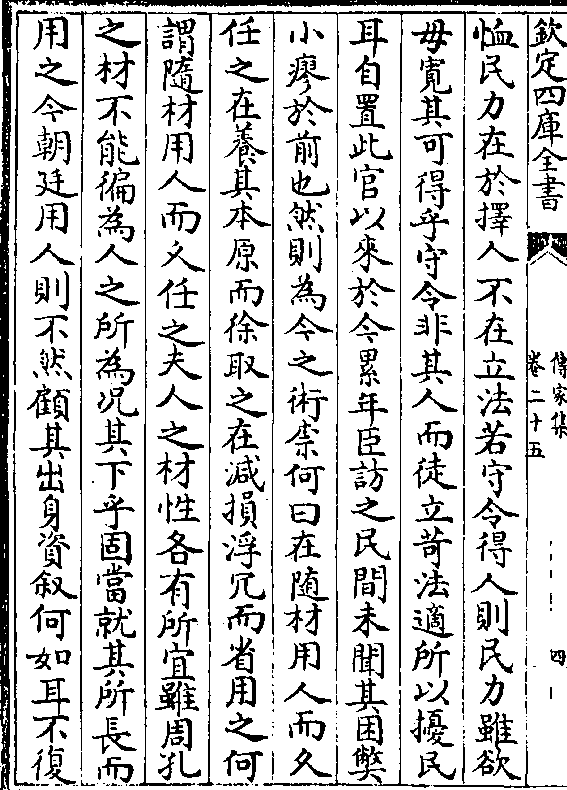 欽定四庫全書
傳家集
卷二十五
四
恤民力在於擇人不在立法若守令得人則民力雖欲
毋寛其可得乎守令非其人而徒立苛法適所以擾民
耳自置此官以來於今累年臣訪之民間未聞其困弊
小瘳於前也然則為今之術柰何曰在随材用人而久
任之在養其本原而徐取之在減損浮冗而省用之何
謂隨材用人而久任之夫人之材性各有所宜雖周孔
之材不能徧為人之所為况其下乎固當就其所長而
用之今朝廷用人則不然顧其出身資叙何如耳不復